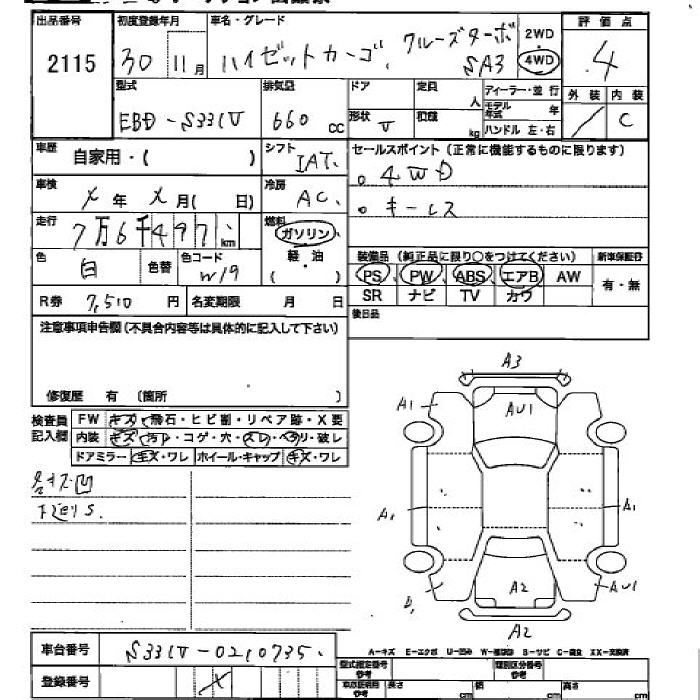 出品番号 初度登録年月 車名・グレード 2WD 評価点
2115 30 11月 ハイゼットカーゴ クルーズターボ SA3 4WD 4
型式 排気量 ドア 定員 人 ディーラー・並行 外装 内装
EBD-S331V 660 cc 形状 V 積載 kg モデル年式 年 ハンドル 左・右 C
車歴 自家用・( ) シフト IAT. セールスポイント (正常に機能するものに限ります)
車検 X年 X月( 日) 冷房 AC. 。4WD
走行 7万6千497km 燃料 ガソリン 。キーレス
軽・油
( )
色 白 色替 色コード W19 装備品 (純正品に限り〇をつけてください) 新車保証書
PS PW ABS エアB AW 有・無
R券 7,510 円 名変期限 月 日 SR ナビ TV カワ
後日品
注意事項申告欄(不具合内容等は具体的に記入して下さい)
修復歴 有 〔箇所 〕
検査員 FW キズ・飛石・ヒビ割・リペア跡・X要
記入欄 内装 キズ・汚レ・コゲ・穴・スレ・ヘタリ・破レ
ドアミラー キズ・ワレ ホイール・キャップ キズ・ワレ
下廻りS.
A3
A1 AU1
A1 A1
A2 AU1
A2
車台番号 S331V-0210735.
A-キズ E-エクボ U-凹ミ W-補修跡 S-サビ C-腐食 XX-交換済
登録番号 X
型式指定番号 参考 類別区分番号 参考
長さ cm 幅 cm 高さ cm